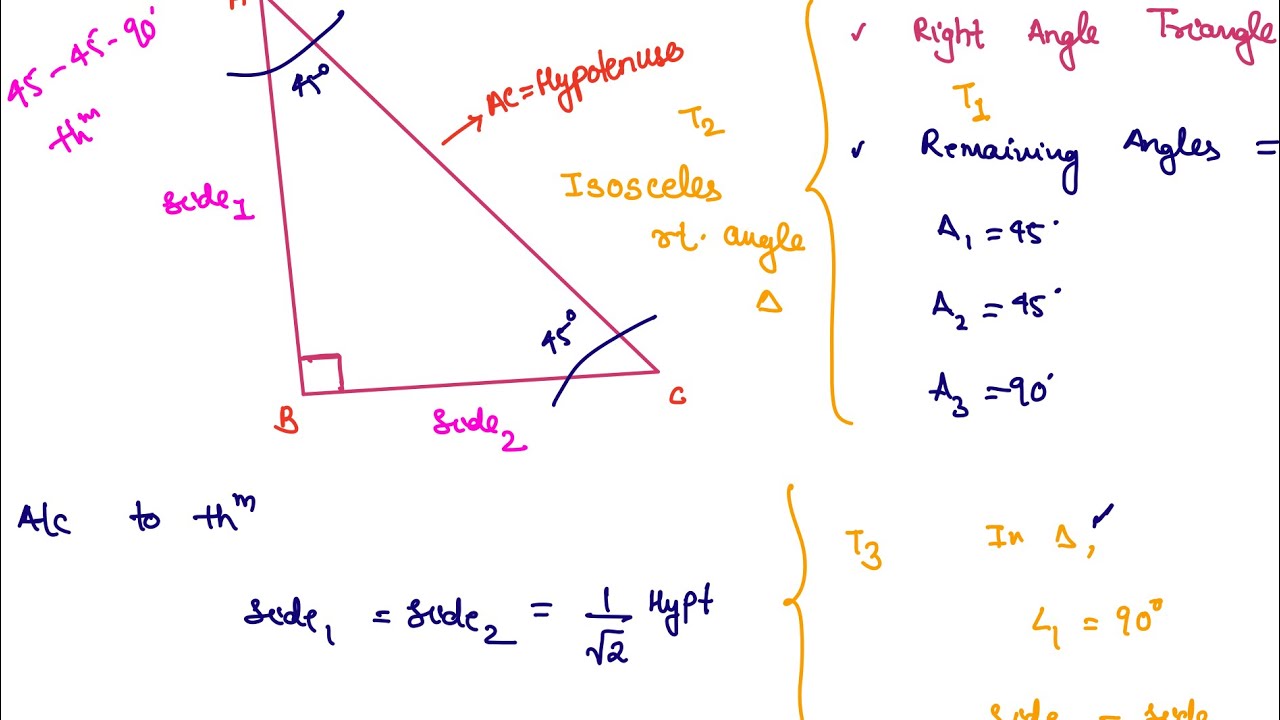 A
45-45-90°
thm
45°
AC=Hypotenuse
side1
T2
Isosceles
rt. angle
Δ
45°
B
C
side2
✓ Right Angle Triangle
T1
✓ Remaining Angles =
A1 = 45°
A2 = 45°
A3 = 90°
A/c to thm
side1 = side2 = 1/√2 Hypt
T3 In Δ, ✓
∠1 = 90°
side = side